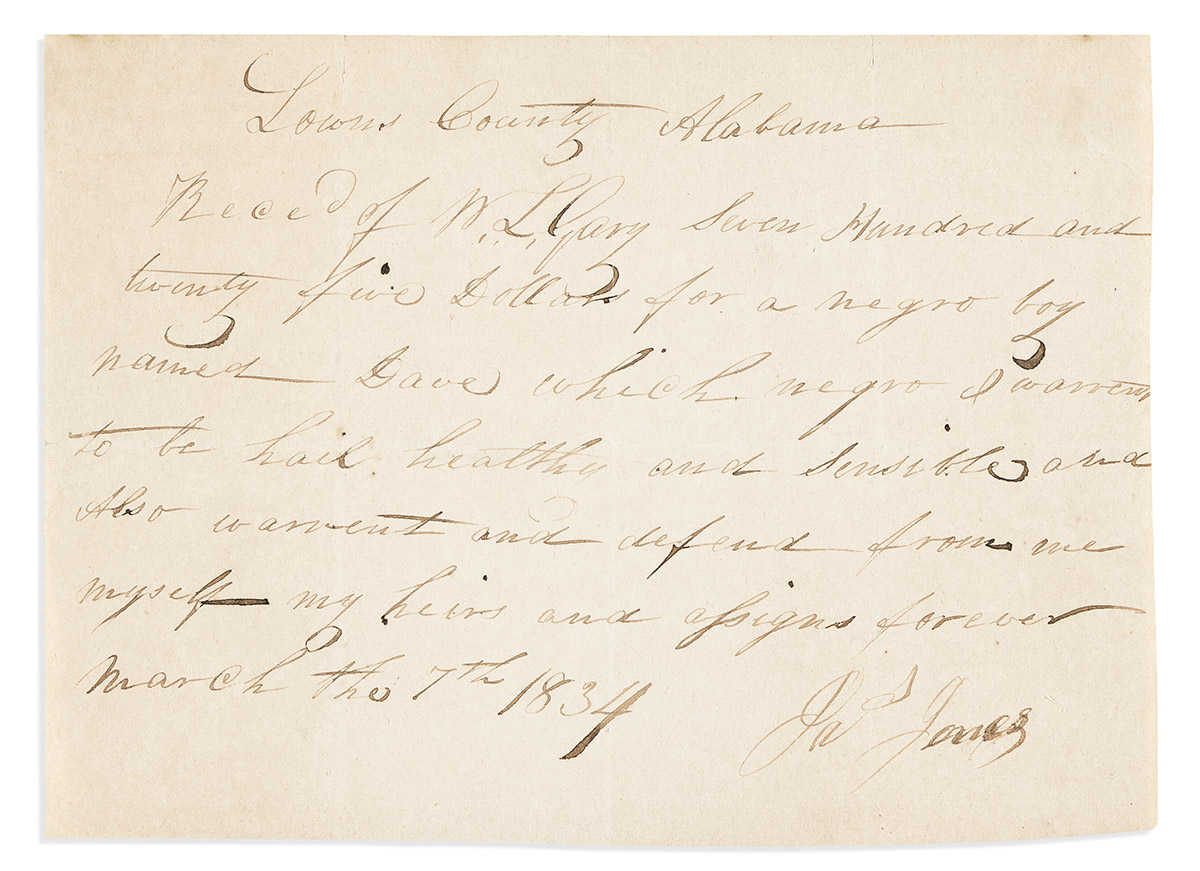 Lowns County Alabama
Reced of W. L. Gary Seven Hundred and
twenty five Dollars for a negro boy
named Dave which negro I warrent
to be hail healthy and sensible and
Also warrent and defend from me
myself my heirs and assigns forever
March the 7th 1834 Jas Jones